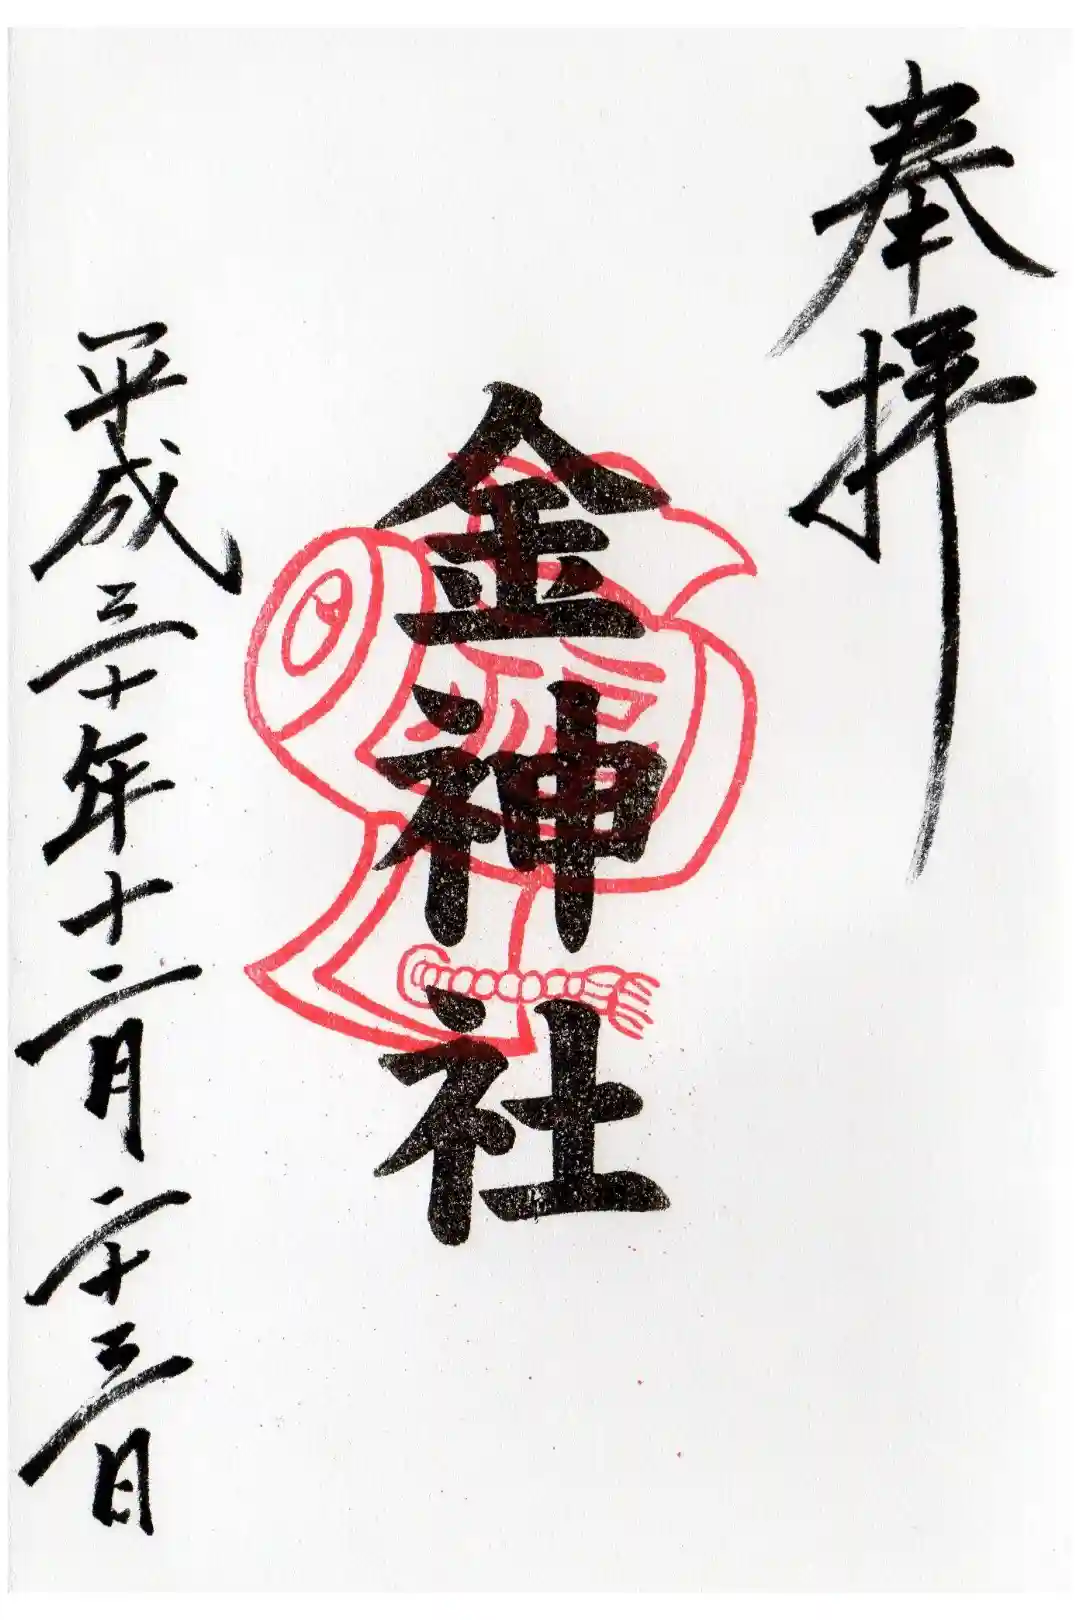 奉拝
金神社
平成三十年十二月二十三日